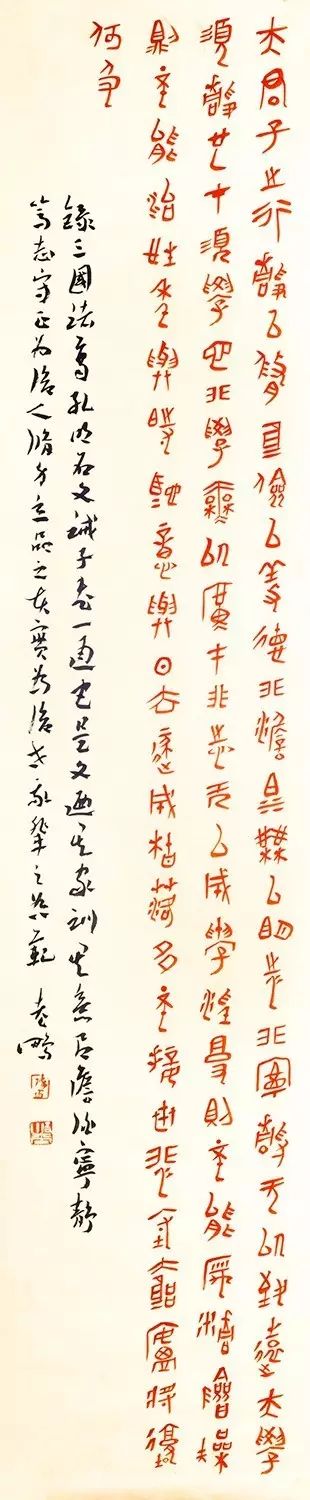 夫君子之行靜以脩身儉以養德非澹泊無以明志非寧靜无以致遠夫學
須靜也才須學也非學無以廣才非志无以成學慆慢則不能厲精險躁
則不能治性年與時馳意與日去遂成枯落多不接世悲守窮廬將復
何及
錄三國諸葛孔明名文誡子書一通是文家訓其意居澹泊寧靜
篤志守正為後人脩身立品之為後世之典範